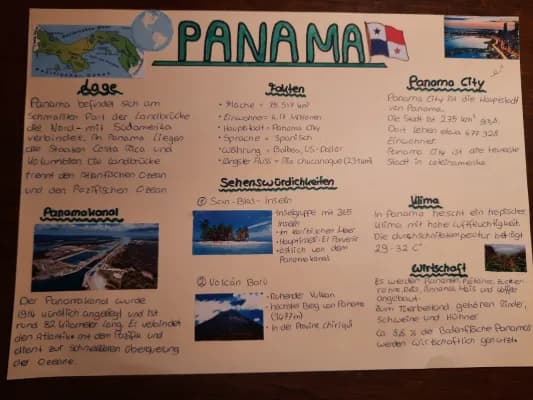 PANAMA
Lage
Panama befindet sich am
schmalsten Part der Landbrücke
die Nord- mit Südamerika
verbindet. An Panama liegen
die Staaten Costa Rica und
Kolumbien. Die Landbrücke
trennt den Atlantischen Ozean
und den Pazifischen Ozean
Panamakanal
Der Panamakanal wurde
1914 künstlich angelegt und ist
rund 82 Kilometer lang. Er verbindet
den Atlantik mit dem Pazifik und
dient zur schnelleren Überquerung
der Ozeane.
Fakten
• Fläche = 75.517 km²
• Einwohner = 4,17 Millionen
• Hauptstadt = Panama City
• Sprache = Spanisch
• Währung = Balboa, US-Dollar
• längste Fluss = Río chucunaque (231km)
Sehenswürdichkeiten
① San-Blas-Inseln
• Inselgruppe mit 365
Inseln
• im karibischen Meer
• Hauptinsel: El Porvenir
• östlich von dem
Panamakanal
② Volcán Barú
• Ruhender Vulkan
• höchster Berg von Panama
(3477m)
• In der Provinz chiriquí
Panama City
Panama City ist die Hauptstadt
von Panama.
Die Stadt ist 275 km² groß.
Dort leben etwa 477.924
Einwohner.
Panama City ist die teuerste
Stadt in Lateinamerika.
Klima
In Panama herrscht ein tropisches
Klima mit hohe Luftfeuchtigkeit.
Die durchschnittstemperatur beträgt
29-32 C°
Wirtschaft
Es werden Bananen, Papayas, Zucker-
rohre, Reis, Ananas, Mais und Kaffee
angebaut.
Zum Tierbestand gehören Rinder,
Schweine und Hühner
der Bodenfläche Panamas
werden wirtschaftlich genutzt.